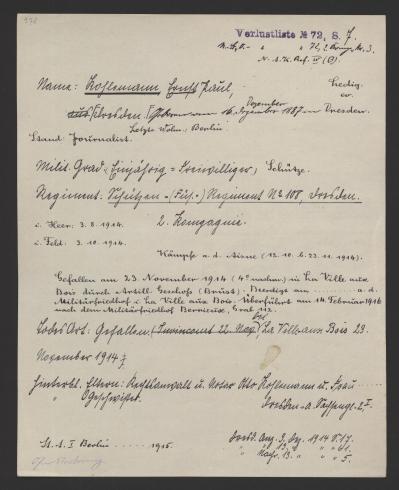 Verlustliste № 72, S. 7.
N. S. K. Ref. IV (B).
Name: Kohlmann, Ernst Paul, ledig.
ev.
aus Dresden. Geboren am 16. Dezember 1887 in Dresden.
Letzte Wohn.: Berlin
Stand: Journalist.
Milit. Grad: Einjährig-Freiwilliger, Schütze.
Regiment: Schützen-(Füs.-) Regiment № 108, Dresden.
i. Heer: 3. 8. 1914. 2. Kompagnie.
i. Feld: 3. 10. 1914.
Kämpfe a. d. Aisne (12. 10. b. 23. 11. 1914).
Gefallen am 23. November 1914 (4° nachm.) in La Ville aux
Bois durch Artill. Geschoß (Brust). Beerdigt am ........ a. d.
Militärfriedhof i. La Ville aux Bois. Überführt am 14. Februar 1916
nach dem Militärfriedhof Berrieux, Grab 12.
Todes Ort: Gefallen (Juvincourt 22. Nov.) bei La Ville aux Bois 23.
November 1914
Hinterbl. Eltern: Rechtsanwalt u. Notar Otto Kohlmann u. Frau
" Geschwister. Dresden-A.
St. A. I Berlin ....... 1915. Dresd. Anz. 3. Dez. 1914 S. 17.
" Nachr. 13. " " " 5.